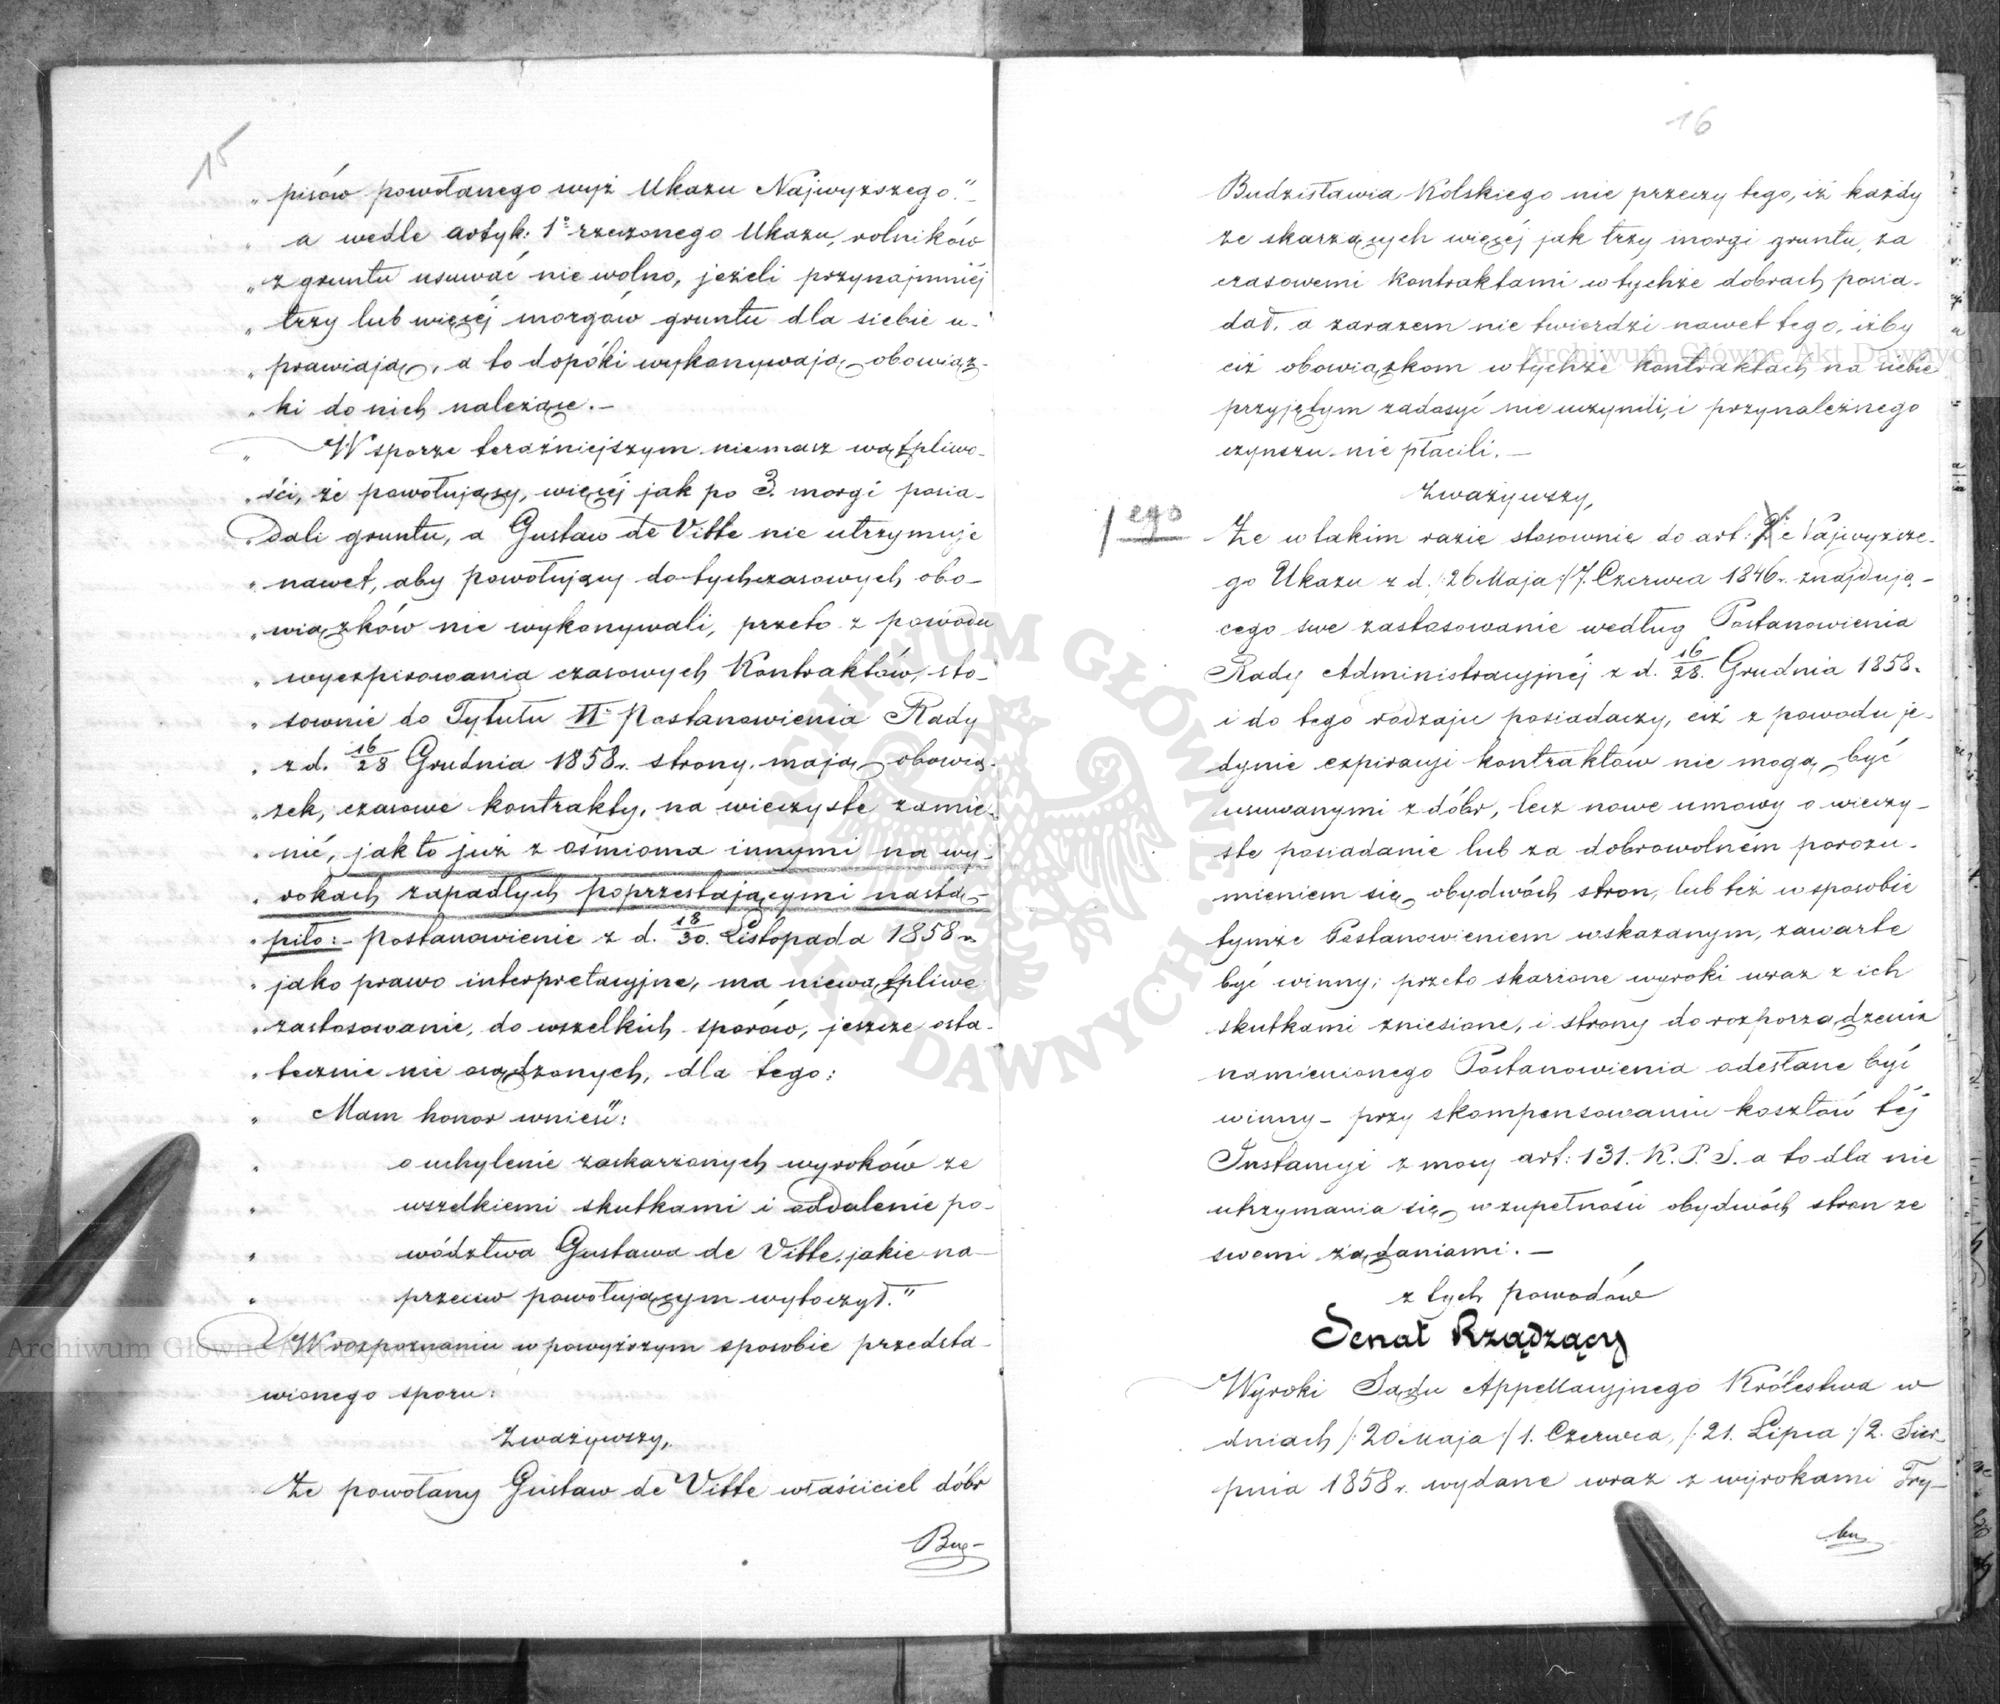 15
„ pisów powołanego wyż Ukazu Najwyższego."–
„ a wedle artyk: 1° rzeczonego Ukazu, rolników
„ z gruntu usuwać nie wolno, jeżeli przynajmniéj
„ trzy lub więcéj morgów gruntu dla siebie u-
„ prawiają, a to dopóki wykonywają obowiąz-
„ ki do nich należące.–
„ W sporze teraźniejszym niemasz wątpliwo-
„ ści, że powołujący, więcéj jak po 3. morgi posia-
„ dali gruntu, a Gustaw de Vitte nie utrzymuje
„ nawet, aby powołujący dotychczasowych obo-
„ wiązków nie wykonywali, przeto z powodu
„ wyexpirowania czasowych Kontraktów, sto-
„ sownie do Tytułu II° Postanowienia Rady
„ z d. 16/28 Grudnia 1858 r. strony mają obowią-
„ zek, czasowe kontrakty, na wieczyste zamie-
„ nić, jak to już z ośmioma innymi na wy-
„ rokach zapadłych poprzestającymi nastą-
„ piło:– Postanowienie z d. 18/30. Listopada 1858 r.
„ jako prawo interpretacyjne, ma niewątpliwe
„ zastosowanie, do wszelkich sporów, jeszcze osta-
„ tecznie nie osądzonych, dla tego:
„ Mam honor wnieść:
„ o uchylenie zaskarżonych wyroków ze
„ wszelkiemi skutkami i oddalenie po-
„ wództwa Gustawa de Vitte, jakie na-
„ przeciw powołującym wytoczył."
W rozpoznaniu w powyższym sposobie przedsta-
wionego sporu:
Zważywszy,
że powołany Gustaw de Vitte właściciel dóbr
16
Budzisławia Kolskiego nie przeczy tego, iż każdy
ze skarżących więcéj jak trzy morgi gruntu, za
czasowemi Kontraktami w tychże dobrach posia-
dał, a zarazem nie twierdzi nawet tego, iżby
ciż obowiązkom w tychże kontraktach na siebie
przyjętym zadosyć nie uczynili, i przynależnego
czynszu nie płacili.–
Zważywszy,
1 ego
Że w takim razie stosownie do art: Najwyższe-
go Ukazu z d. /:26 Maja:/ 7. Czerwca 1846 r. znajdują-
cego swe zastosowanie według Postanowienia
Rady Administracyjnéj z d. 16/28. Grudnia 1858 r.
i do tego rodzaju posiadaczy, ciż z powodu je-
dynie expiracyi kontraktów nie mogą być
usuwanymi z dóbr, lecz nowe umowy o wieczy-
ste posiadanie lub za dobrowolném porozu-
mieniem się obydwóch stron, lub też w sposobie
tymże Postanowieniem wskazanym, zawarte
być winny; przeto skarżone wyroki wraz z ich
skutkami zniesione, i strony do rozporządzenia
namienionego Postanowienia odesłane być
winny – przy skompensowaniu kosztów téj
Instancyi z mocy art: 131. K. P. S. a to dla nie
utrzymania się w zupełności obydwóch stron ze
swemi żądaniami.–
z tych powodów
Senat Rządzący
Wyroki Sądu Appellacyjnego Królestwa w
dniach /:20 Maja:/ 1. Czerwca, /:21. Lipca:/ 2. Sier-
pnia 1858 r. wydane wraz z wyrokami Try-
ARCHIWUM GŁÓWNE AKT DAWNYCH
Archiwum Główne Akt Dawnych
Archiwum Główne Akt Dawnych